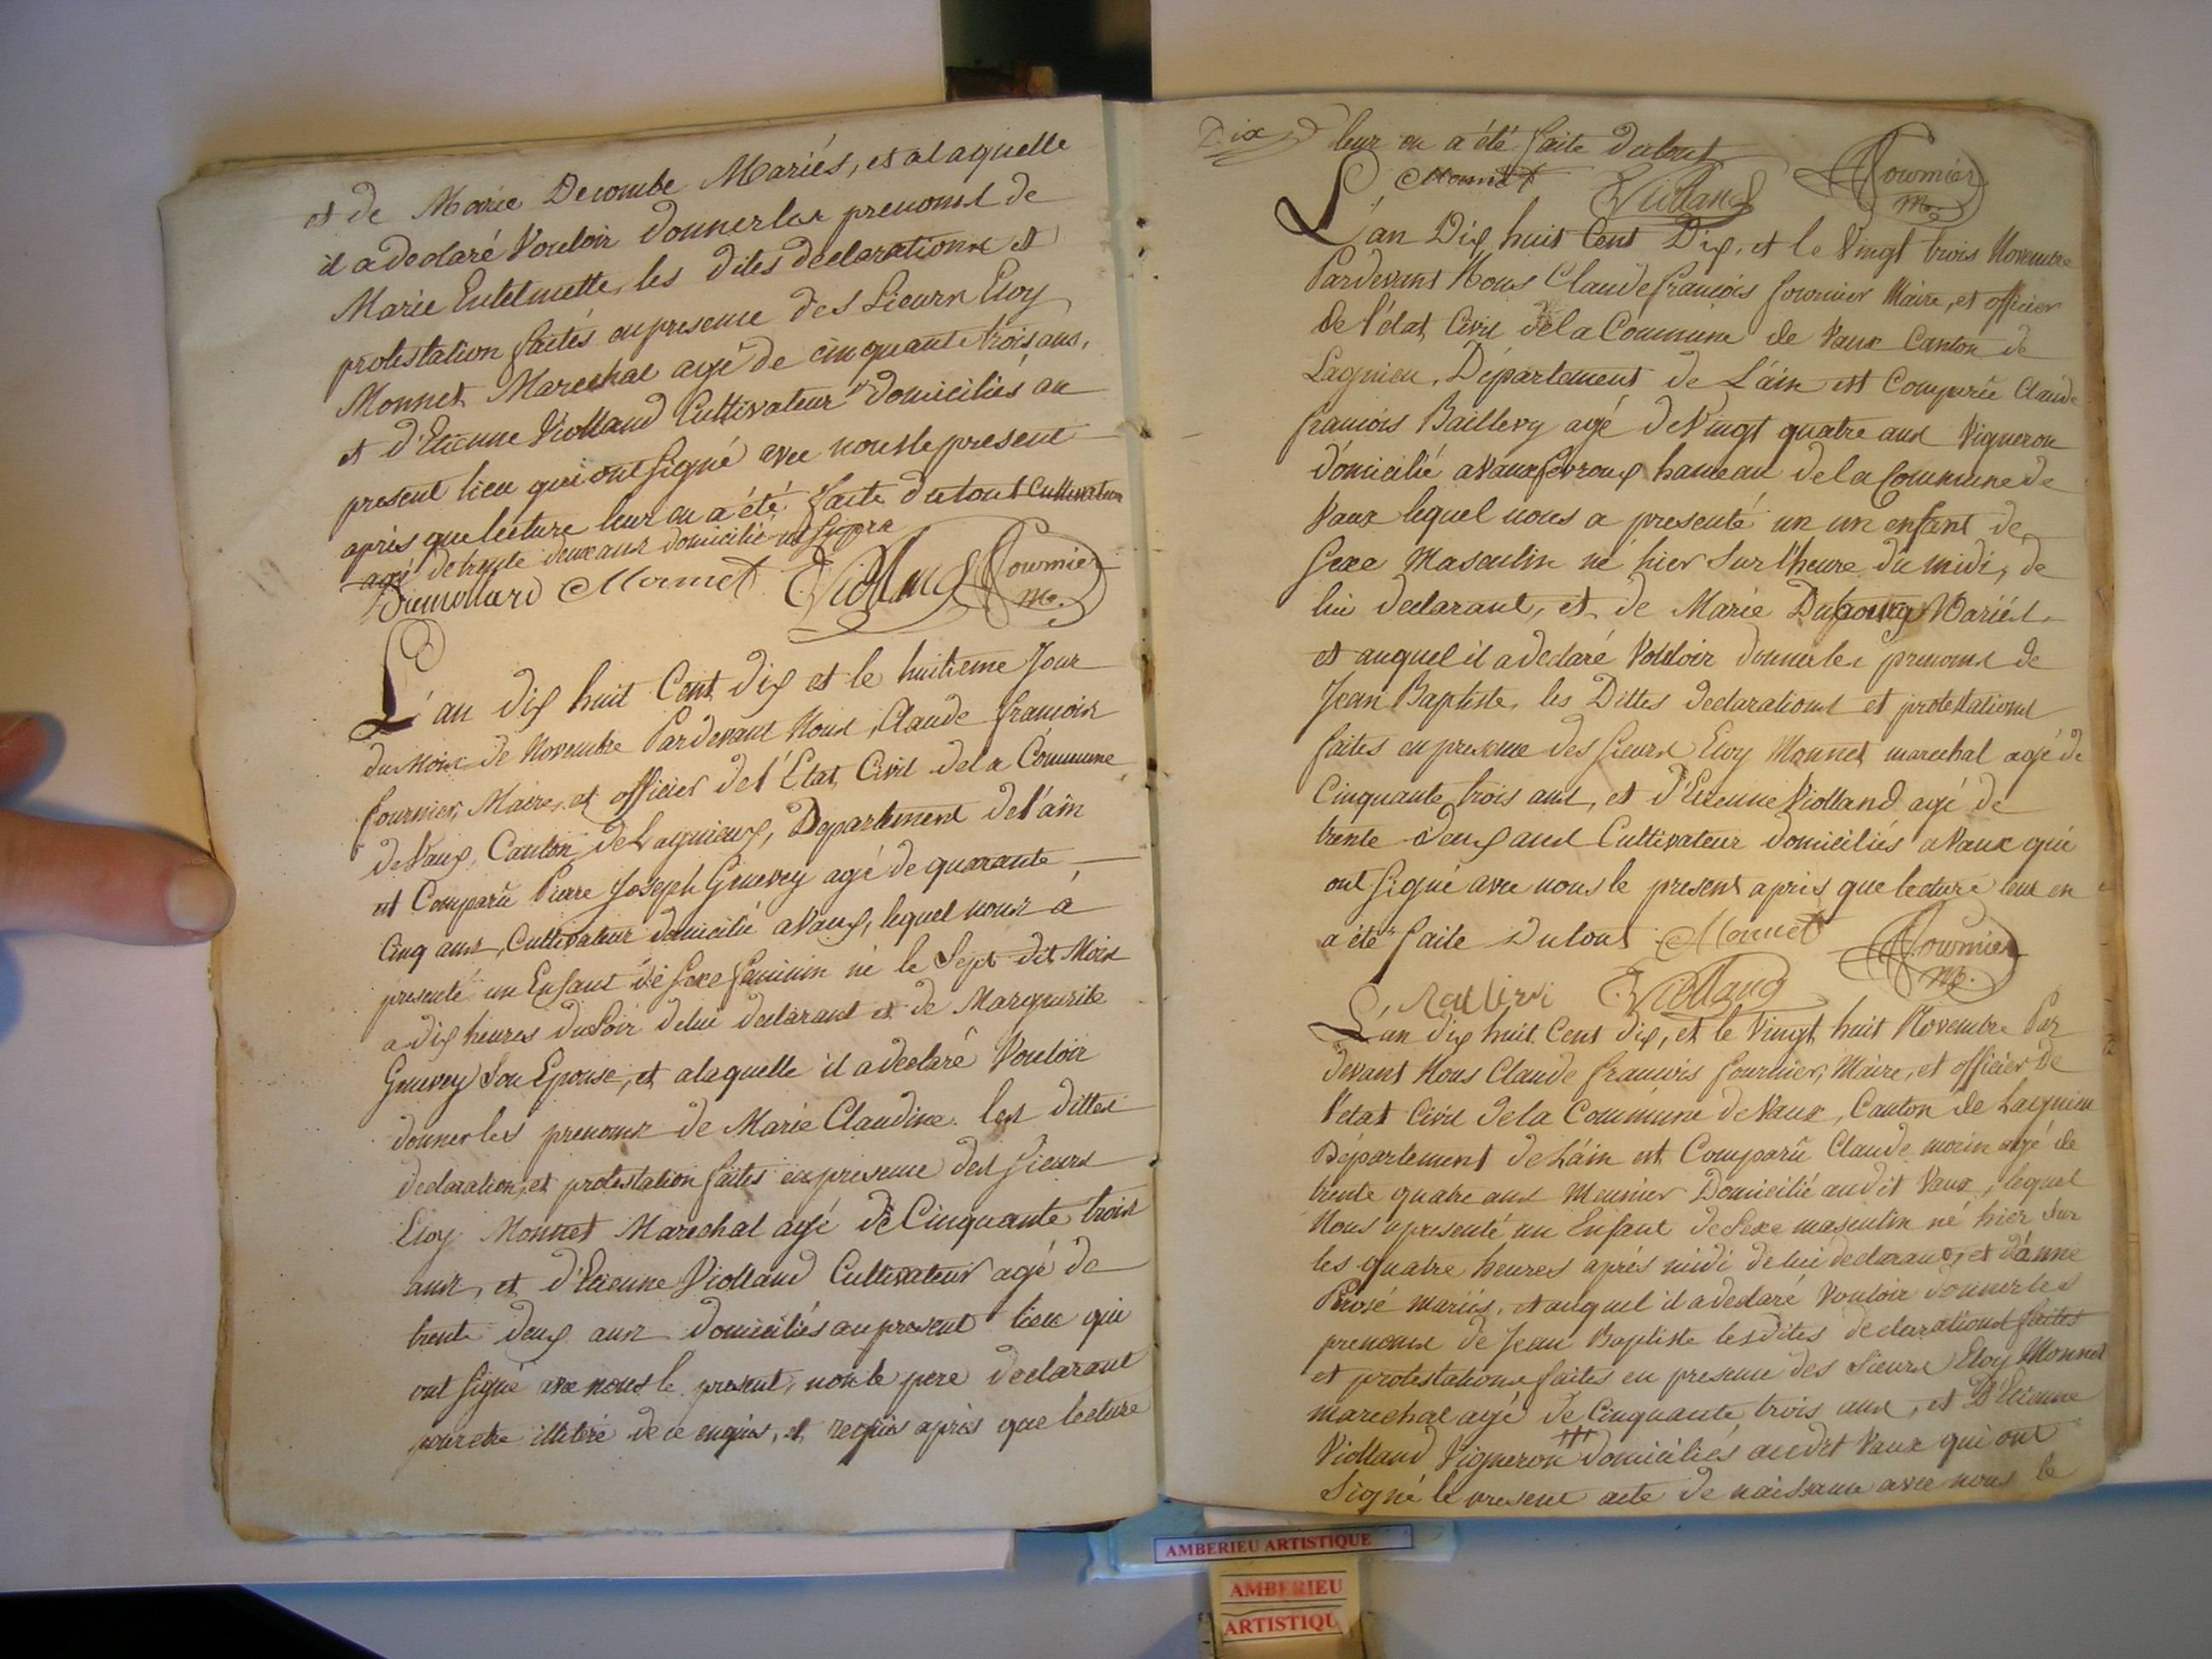 et de Marie Decombe Mariés, et a laquelle
il a declaré Vouloir donner les prenoms de
Marie Entelmette, les dites declarations et
protestation faites en presence des Sieurs Eloy
Monnet Marechal agé de cinquante trois ans,
et d'Etienne Violland Cultivateur domiciliés au
present lieu qui ont Signé avec nous le present
après que lecture leur en a été faite du tout Cultivateur
agé de trente deux ans domicilié ut Supra
Monnet Violland Fournier
Me.
L'an dix huit Cent dix et le huitieme Jour
du Mois de Novembre Pardevant Nous Claude françois
fournier, Maire, et officier de l'État Civil de la Commune
de Vaux, Canton de Lagnieux, Departement de l'ain
est Comparû Pierre Joseph Genevey agé de quarante
Cinq ans, Cultivateur domicilié a Vaux, lequel nous a
presenté un Enfant de Sexe feminin né le Sept dit Mois
a dix heures du Soir de lui declarant et de Marguerite
Genevey Son Epouse, et a laquelle il a declaré Vouloir
donner les prenoms de Marie Claudine. les dittes
declaration, et protestation faites en presence des Sieurs
Eloy Monnet Marechal agé de Cinquante trois
ans, et d'Etienne Violland Cultivateur agé de
trente deux ans domiciliés au present lieu qui
ont Signé avec nous le present, non le pere declarant
pour etre illiteré de ce enquis, et requis après que lecture
Dix leur en a été faite du tout
Monnet Violland Fournier
Me.
L'an Dix huit Cent Dix, et le Vingt trois Novembre
Pardevant Nous Claude françois fournier Maire, et officier
de l'état Civil de la Commune de Vaux Canton de
Lagnieu, Département de L'ain est Comparû Claude
françois Baillevy agé de Vingt quatre ans Vigneron
domicilié a Vaux fevroux hameau de la Commune de
Vaux lequel nous a presenté un un enfant de
Sexe Masculin né hier Sur l'heure du midi, de
lui declarant, et de Marie Dubourg Mariés
et auquel il a declaré Vouloir donner les prenoms de
Jean Baptiste, les Dittes declarations et protestations
faites en presence des Sieurs Eloy Monnet marechal agé de
Cinquante trois ans, et d'Etienne Violland agé de
trente deux ans Cultivateur domiciliés a Vaux qui
ont Signé avec nous le present après que lecture leur en
a été faite du tout Monnet Fournier
Me.
Violland
L'an dix huit Cent dix, et le Vingt huit Novembre Par
devant Nous Claude françois fournier, Maire, et officier de
l'etat Civil de la Commune de Vaux, Canton de Lagnieu
Département de L'ain est Comparû Claude morin agé de
trente quatre ans Meunier Domicilié audit Vaux, lequel
Nous a presenté un Enfant de Sexe masculin né hier Sur
les quatre heures après midi de lui declarant, et d'anne
Perosé mariés, et auquel il a declaré Vouloir donner les
prenoms de Jean Baptiste les dites declarations faites
et protestations faites en presence des Sieurs Eloy Monnet
marechal agé de Cinquante trois ans, et D'Etienne
Violland Vigneron domiciliés audit Vaux qui ont
Signé le present acte de naissance avec nous le
AMBERIEU ARTISTIQUE
AMBERIEU
ARTISTIQU